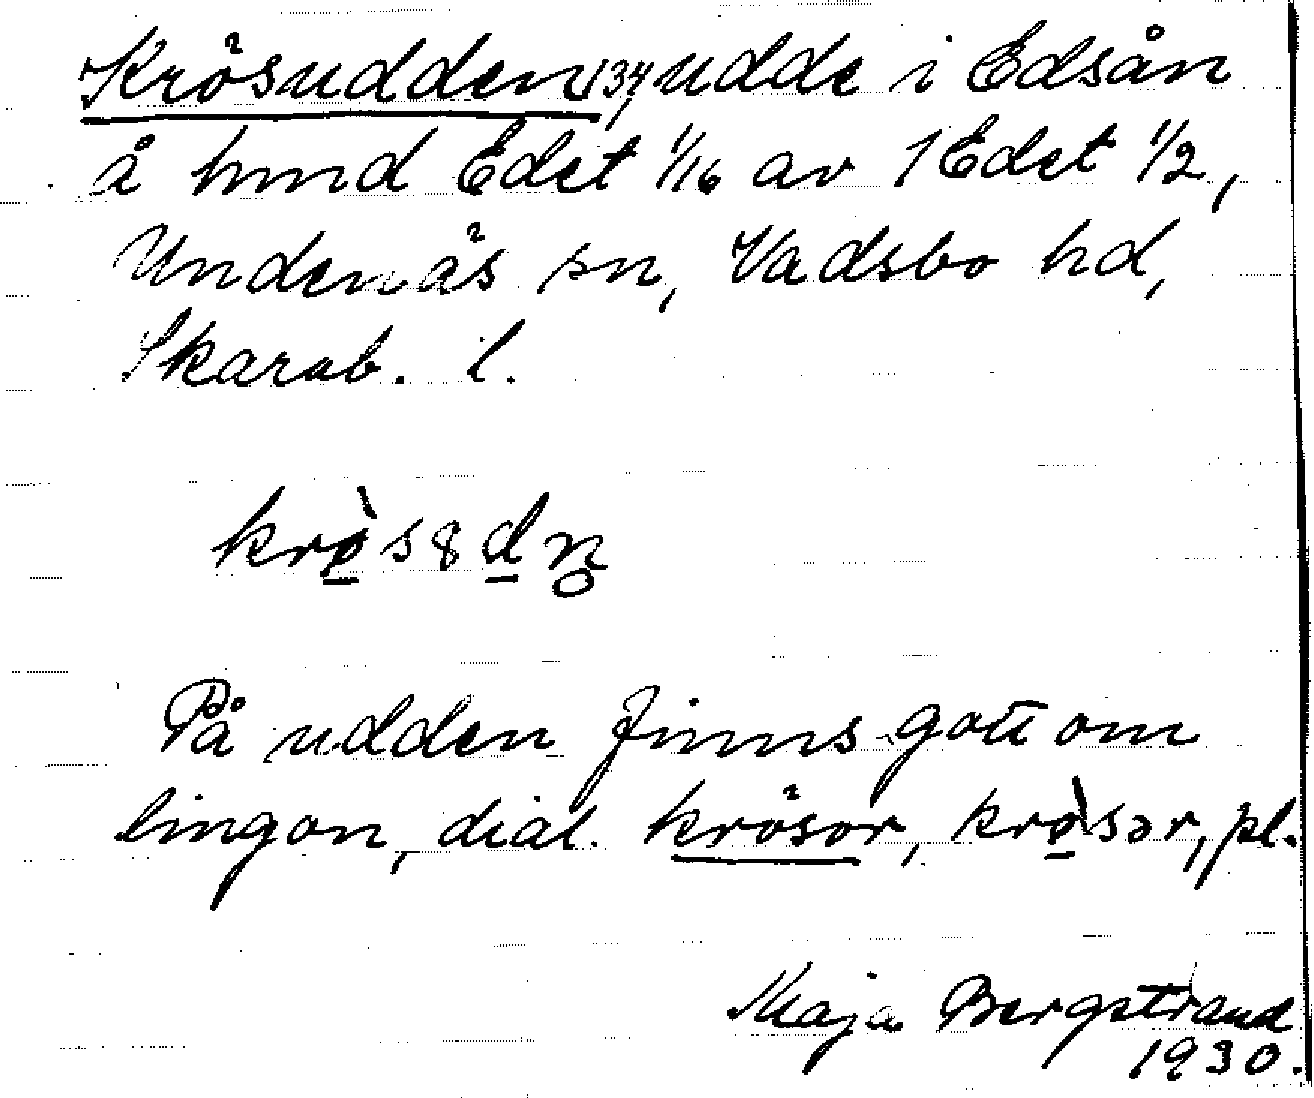 Krösudden 134, udde i Edsån
å hmd Edet 1/16 av 1 Edet 1/2,
Undenäs sn, Vadsbo hd,
Skarab. l.
krø̠̀s8d̠n̥
På udden finns gott om
lingon, dial. krösor, krø̠̀sər, pl.
Maja Bergstrand
1930.